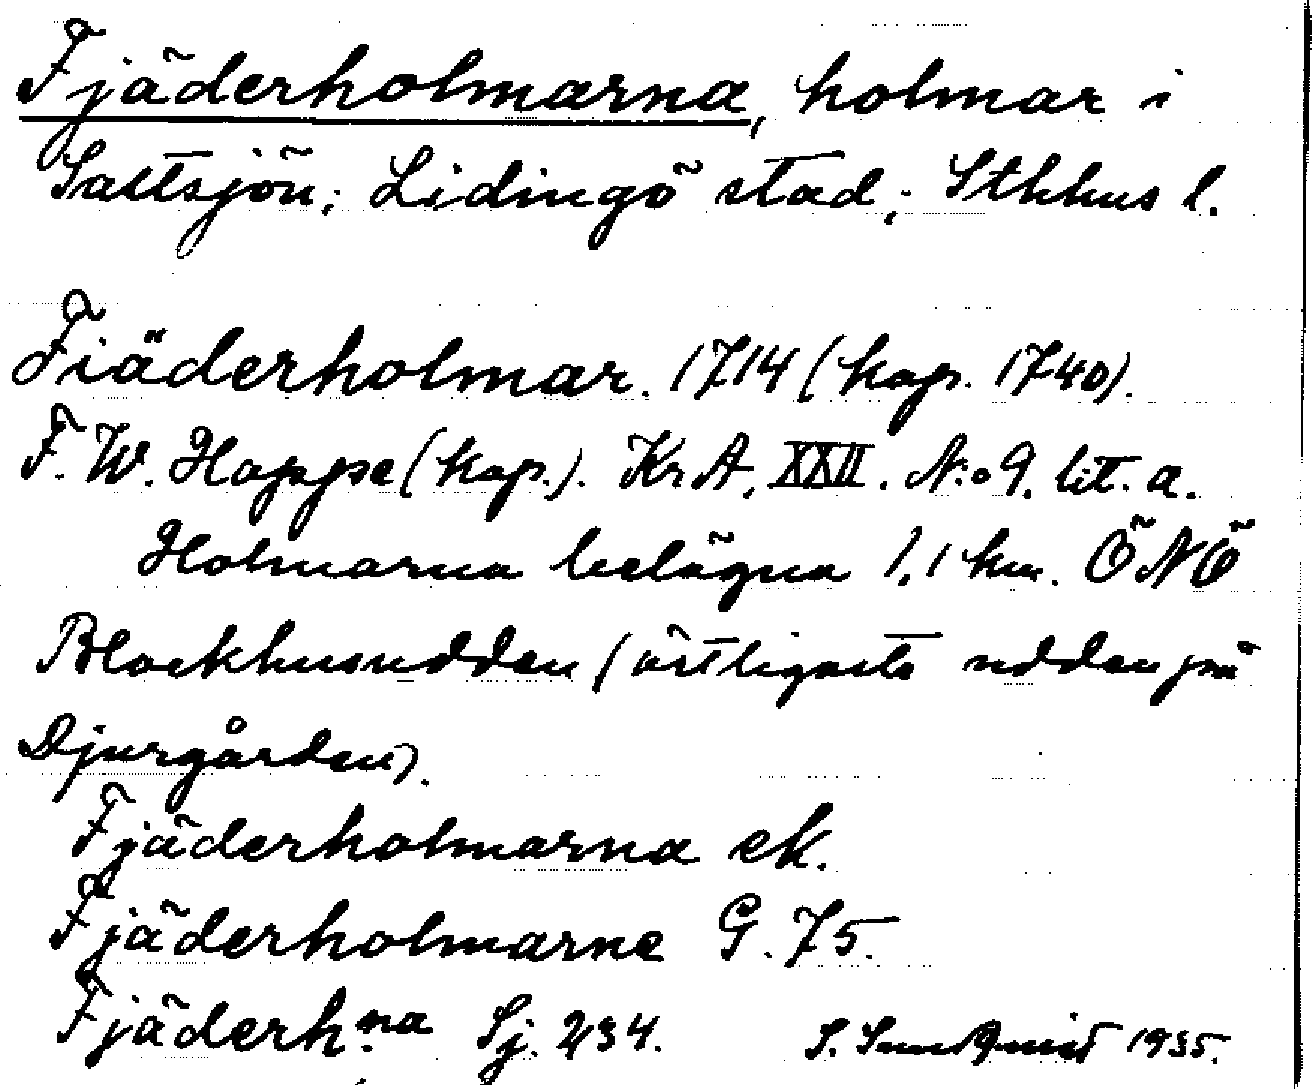 Fjäderholmarna, holmar i
Saltsjön; Lidingö stad; Sthlms l.
Fiäderholmar. 1714 (kop. 1740).
F. W. Hoppe (kop.). KrA, XXII. N:o 9. lit. a.
Holmarna belägna 1,1 km. ÖNÖ
Blockhusudden (östligaste udden på
Djurgården).
Fjäderholmarna ek.
Fjäderholmarne G. 75.
Fjäderh:na Sj. 234. S. Sundqvist 1935.